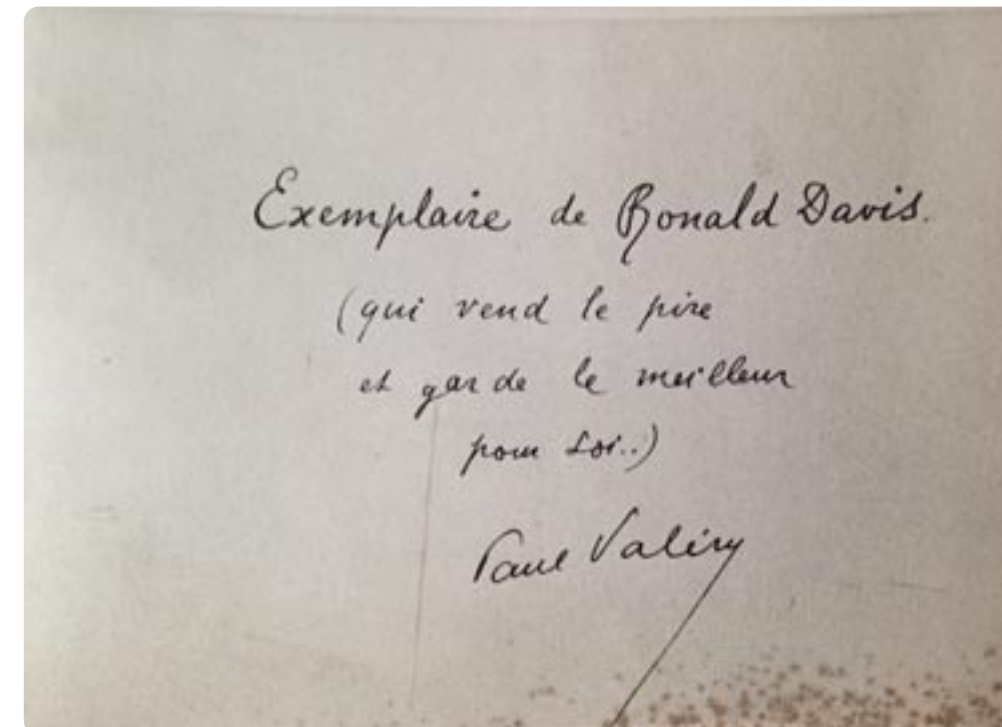 Exemplaire de Ronald Davis.
(qui vend le pire
et garde le meilleur
pour soi..)
Paul Valéry